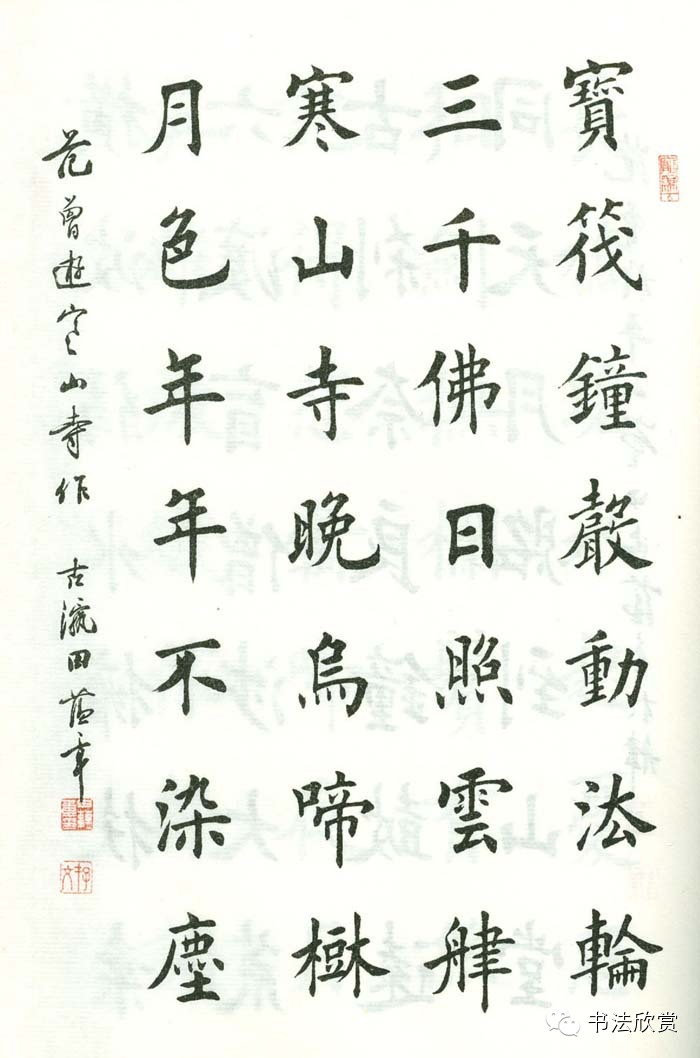 寶筏鐘聲動法輪
三千佛日照雲津
寒山寺晚烏啼樹
月色年年不染塵
范曾遊寒山寺作 古瀛田蘊章
书法欣赏